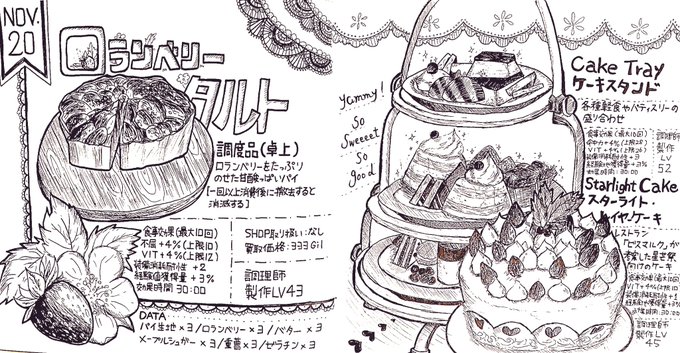 NOV.
20
ロランベリー
タルト
調度品(卓上)
ロランベリーをたっぷり
のせた甘酸っぱいパイ
[一回以上消費後に撤去すると
消滅する]
食事効果(最大10回)
不屈+4%(上限10)
VIT+4%(上限12)
装備消耗耐性+2
経験値獲得量+3%
効果時間 30:00
SHOP取り扱い:なし
買取価格:333Gil
調理師
製作LV43
DATA
パイ生地×3/ロランベリー×3/バター×3
メープルシュガー×3/重曹×3/ゼラチン×3
Yummy!
So
Sweeeet
So
good
Cake Tray
ケーキスタンド
各種軽食やパティスリーの
盛り合わせ
食事効果(最大10回)
VIT+4%
経験値獲得量+3%
効果時間:30:00
調理師
製作
LV
52
Starlight Cake
スターライト・
ケーキ
レストラン
「ビスマルク」が
考案した星芒祭
向けのケーキ
食事効果(最大10回)
VIT+4%
30:00
調理師
製作LV
45